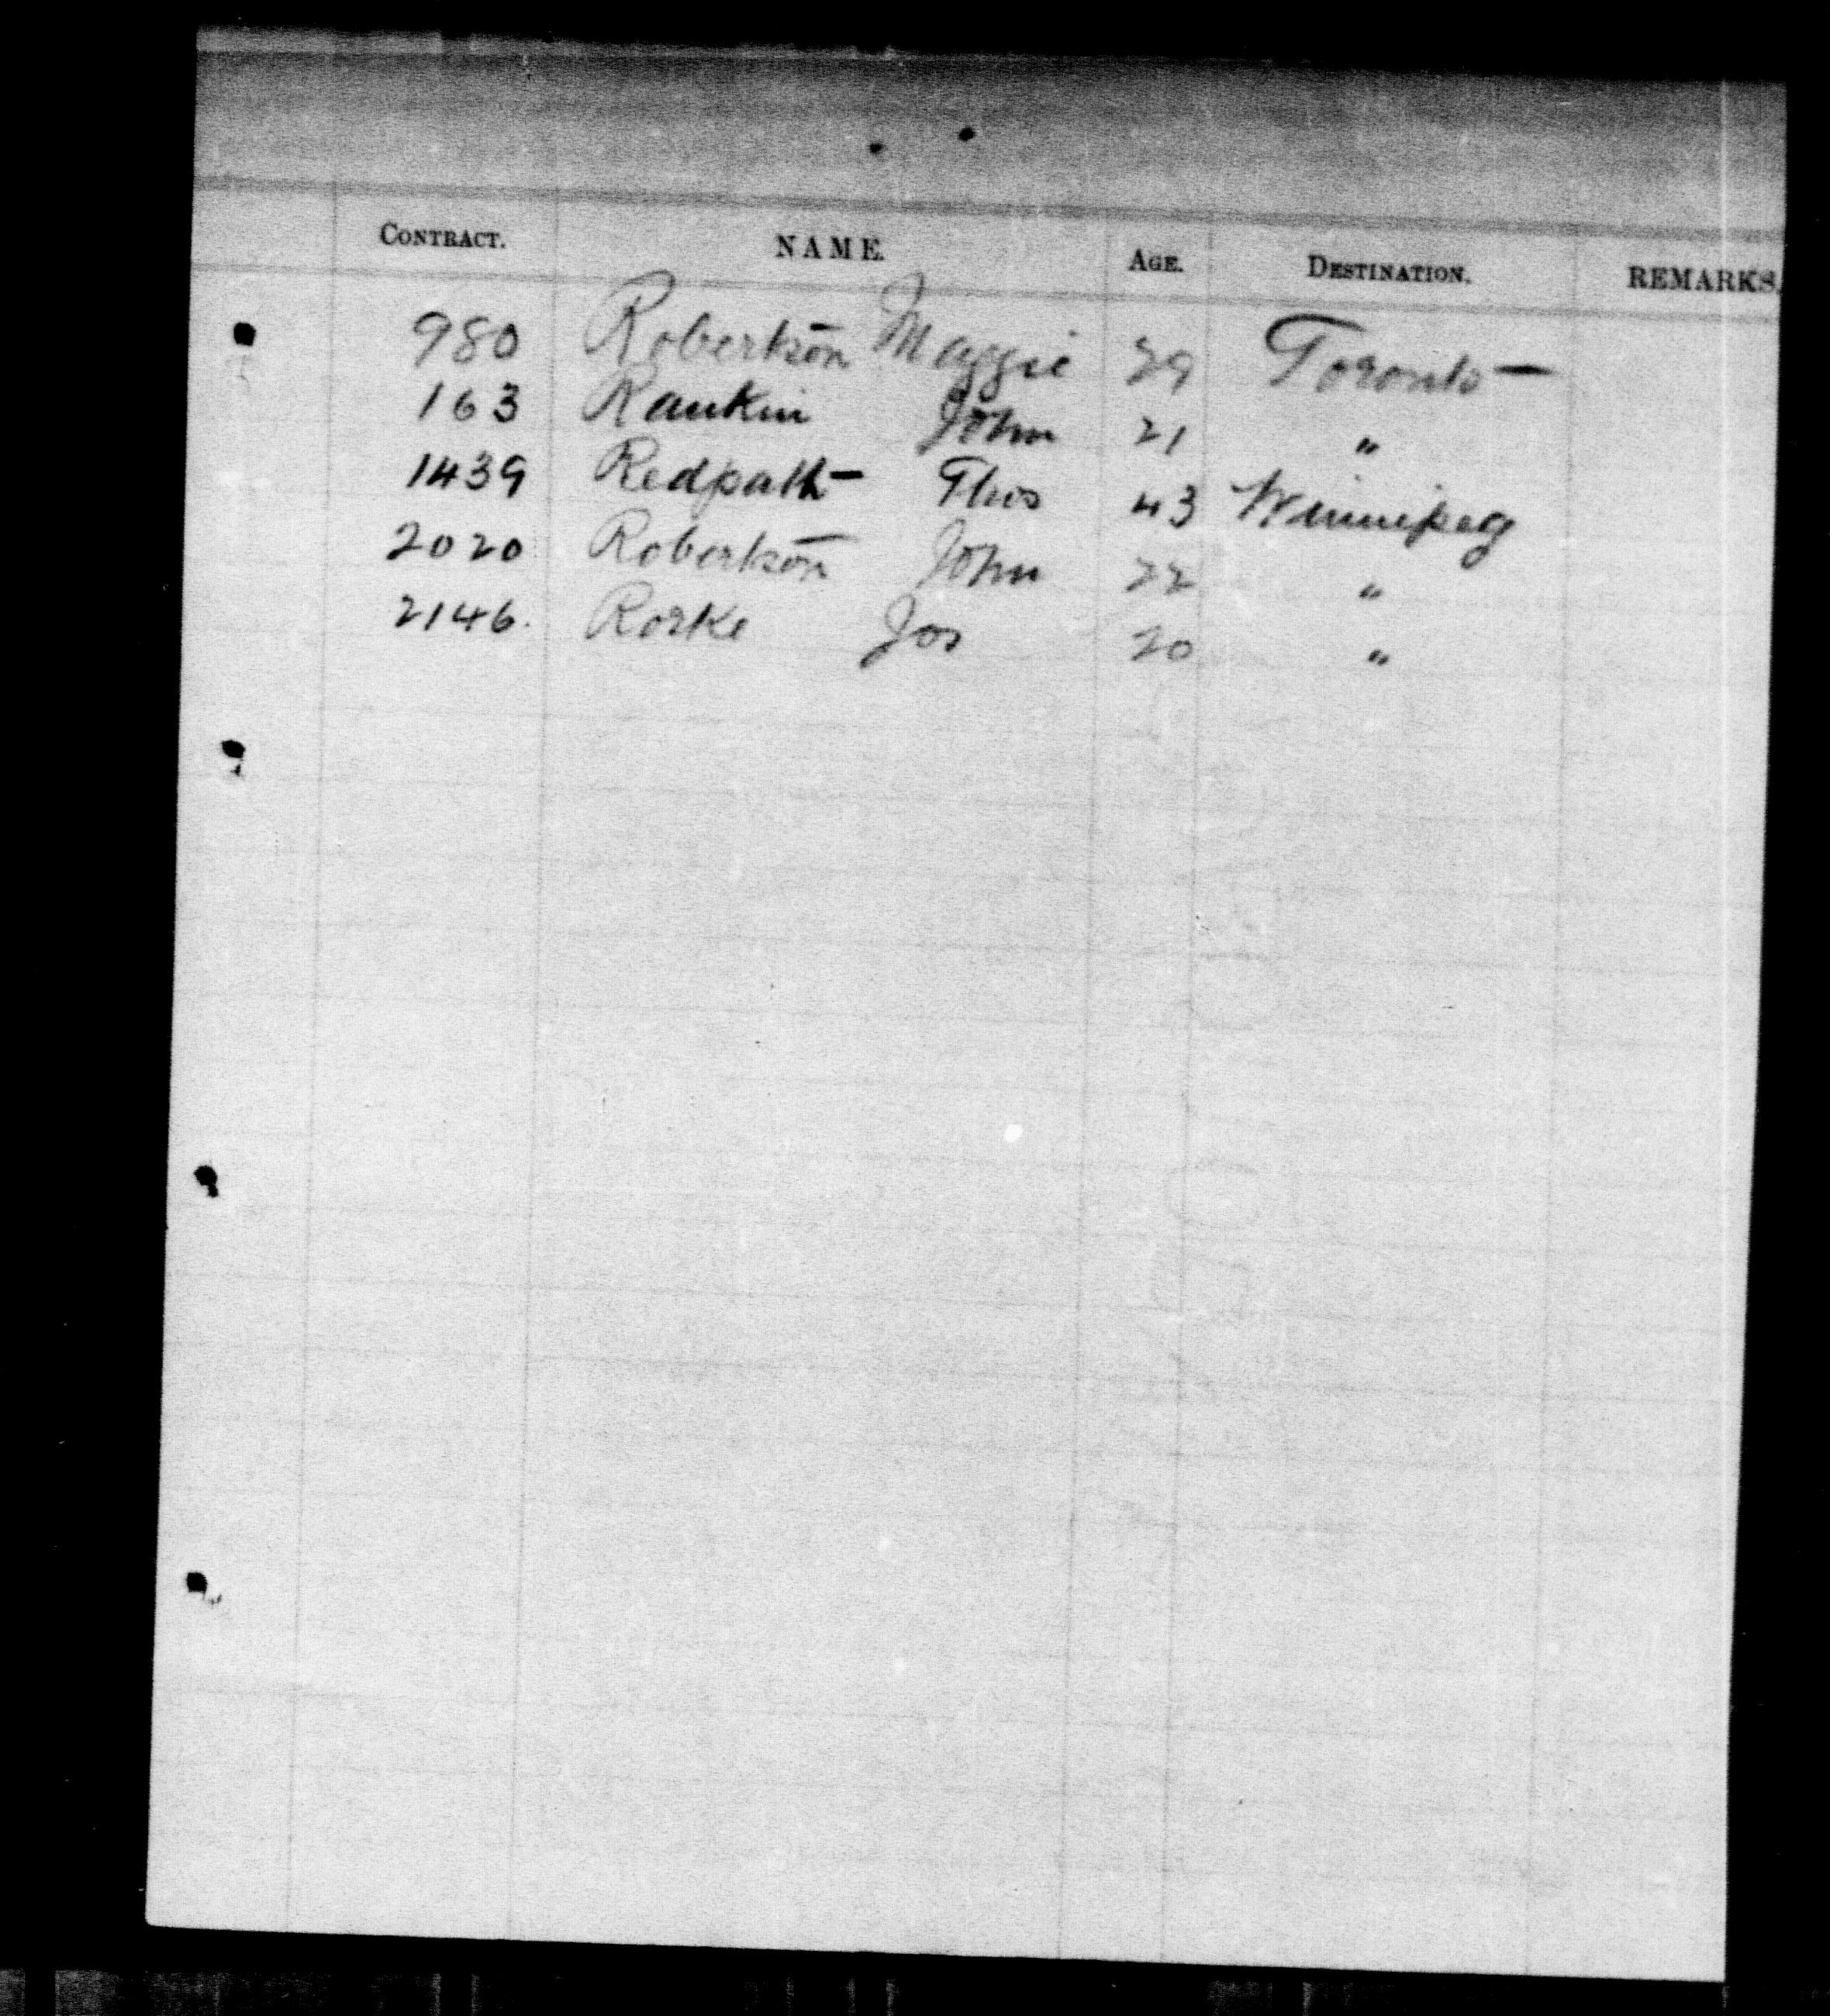 CONTRACT. NAME. AGE. DESTINATION. REMARKS.
980 Robertson Maggie 29 Toronto
163 Rankin John 21 "
1439 Redpath Thos 43 Winnipeg
2020 Robertson John 22 "
2146. Rorke Jos 20 "